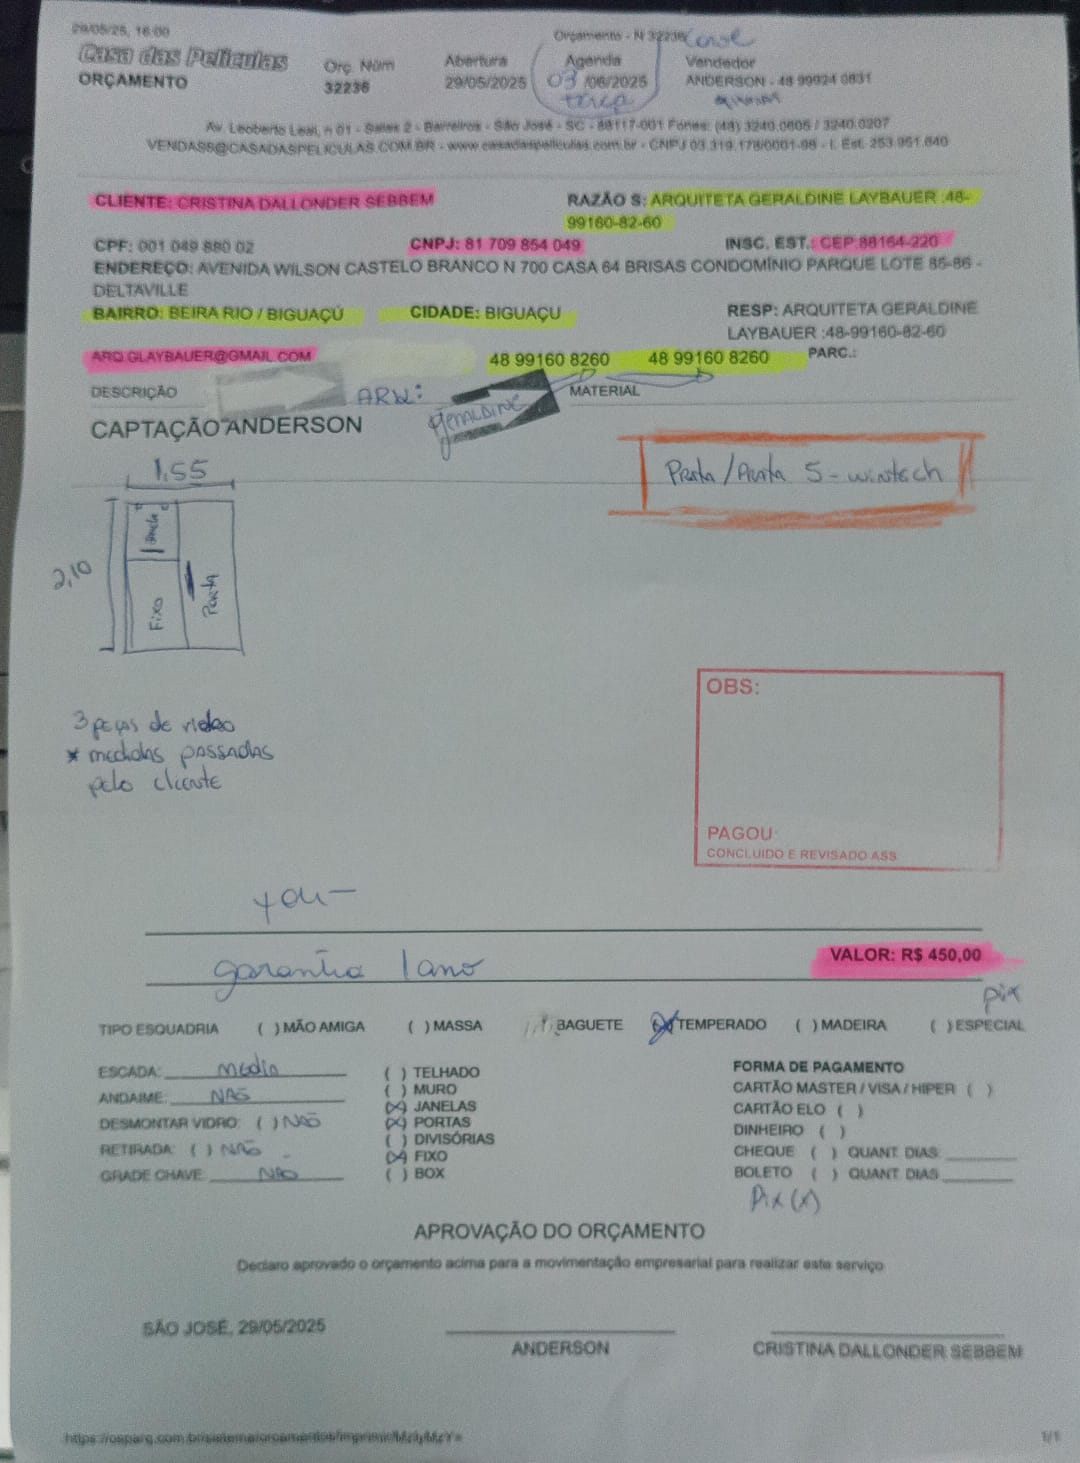 29/05/25, 16:00
Orçamento - N 32236
Casa das Películas
ORÇAMENTO
Orç. Núm
32236
Abertura
29/05/2025
Agenda
03 /06/2025
terça
Vendedor
ANDERSON - 48 99924 0831
Av. Leoberto Leal, n 01 - Salas 2 - Barreiros - São José - SC - 88117-001 Fones: (48) 3240.0605 / 3240.0207
VENDAS8@CASADASPELICULAS.COM.BR - www.casadaspeliculas.com.br - CNPJ 03.319.178/0001-98 - I. Est. 253.951.640
CLIENTE: CRISTINA DALLONDER SEBBEM
RAZÃO S: ARQUITETA GERALDINE LAYBAUER :48-
99160-82-60
CPF: 001 049 880 02
CNPJ: 81 709 854 049
INSC. EST.: CEP.88164-220
ENDEREÇO: AVENIDA WILSON CASTELO BRANCO N 700 CASA 64 BRISAS CONDOMÍNIO PARQUE LOTE 85-86 -
DELTAVILLE
BAIRRO: BEIRA RIO / BIGUAÇÚ
CIDADE: BIGUAÇU
RESP: ARQUITETA GERALDINE
LAYBAUER :48-99160-82-60
ARQ.GLAYBAUER@GMAIL.COM
48 99160 8260
48 99160 8260
PARC.:
DESCRIÇÃO
ARQ:
GERALDINE
MATERIAL
CAPTAÇÃO ANDERSON
Prata/Prata 5 - wintech
1,55
2,10
Janela
Fixo
Porta
3 peças de vidro
* medidas passadas
pelo cliente
OBS:
PAGOU:
CONCLUIDO E REVISADO ASS
garantia 1 ano
VALOR: R$ 450,00
pix
TIPO ESQUADRIA
( ) MÃO AMIGA
( ) MASSA
( ) BAGUETE
(X) TEMPERADO
( ) MADEIRA
( ) ESPECIAL
ESCADA: media
ANDAIME: NÃO
DESMONTAR VIDRO: ( ) NÃO
RETIRADA: ( ) NÃO
GRADE CHAVE: NÃO
( ) TELHADO
( ) MURO
(X) JANELAS
(X) PORTAS
( ) DIVISÓRIAS
(X) FIXO
( ) BOX
FORMA DE PAGAMENTO
CARTÃO MASTER / VISA / HIPER ( )
CARTÃO ELO ( )
DINHEIRO ( )
CHEQUE ( ) QUANT. DIAS:
BOLETO ( ) QUANT. DIAS
Pix (x)
APROVAÇÃO DO ORÇAMENTO
Declaro aprovado o orçamento acima para a movimentação empresarial para realizar este serviço
SÃO JOSÉ, 29/05/2025
ANDERSON
CRISTINA DALLONDER SEBBEM
1/1